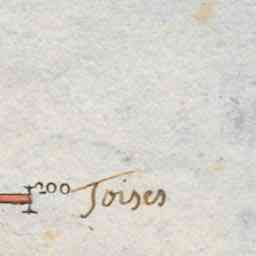 200 Toises